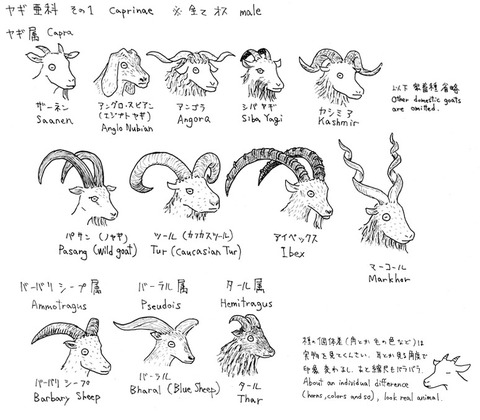 ヤギ亜科 その1 Caprinae ※全てオス male
ヤギ属 Capra
ザーネン
Saanen
アングロ・ヌビアン
(エジプトヤギ)
Anglo Nubian
アンゴラ
Angora
シバヤギ
Siba Yagi
カシミア
Kashmir
以下 家畜種 省略
Other domestic goats
are omitted.
パサン (ノヤギ)
Pasang (Wild goat)
ツール (カフカスツール)
Tur (Caucasian Tur)
アイベックス
Ibex
マーコール
Markhor
バーバリシープ属
Ammotragus
バーラル属
Pseudois
タール属
Hemitragus
バーバリシープ
Barbary Sheep
バーラル
Bharal (Blue Sheep)
タール
Thar
種の個体差(角とか毛の色など)は
実物を見てください。耳とか見る角度で
印象変わるし。あと縮尺もバラバラ。
About an individual difference
(horns, colors and so), look real animal.